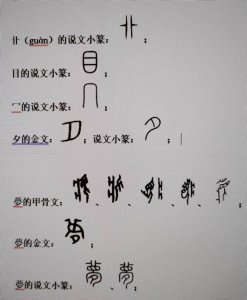 卝（guàn）的说文小篆：；
目的说文小篆：；
冖的说文小篆：；
夕的金文：；说文小篆：；
夢的甲骨文：、、、、；
夢的金文：；
夢的说文小篆：夢、夢；